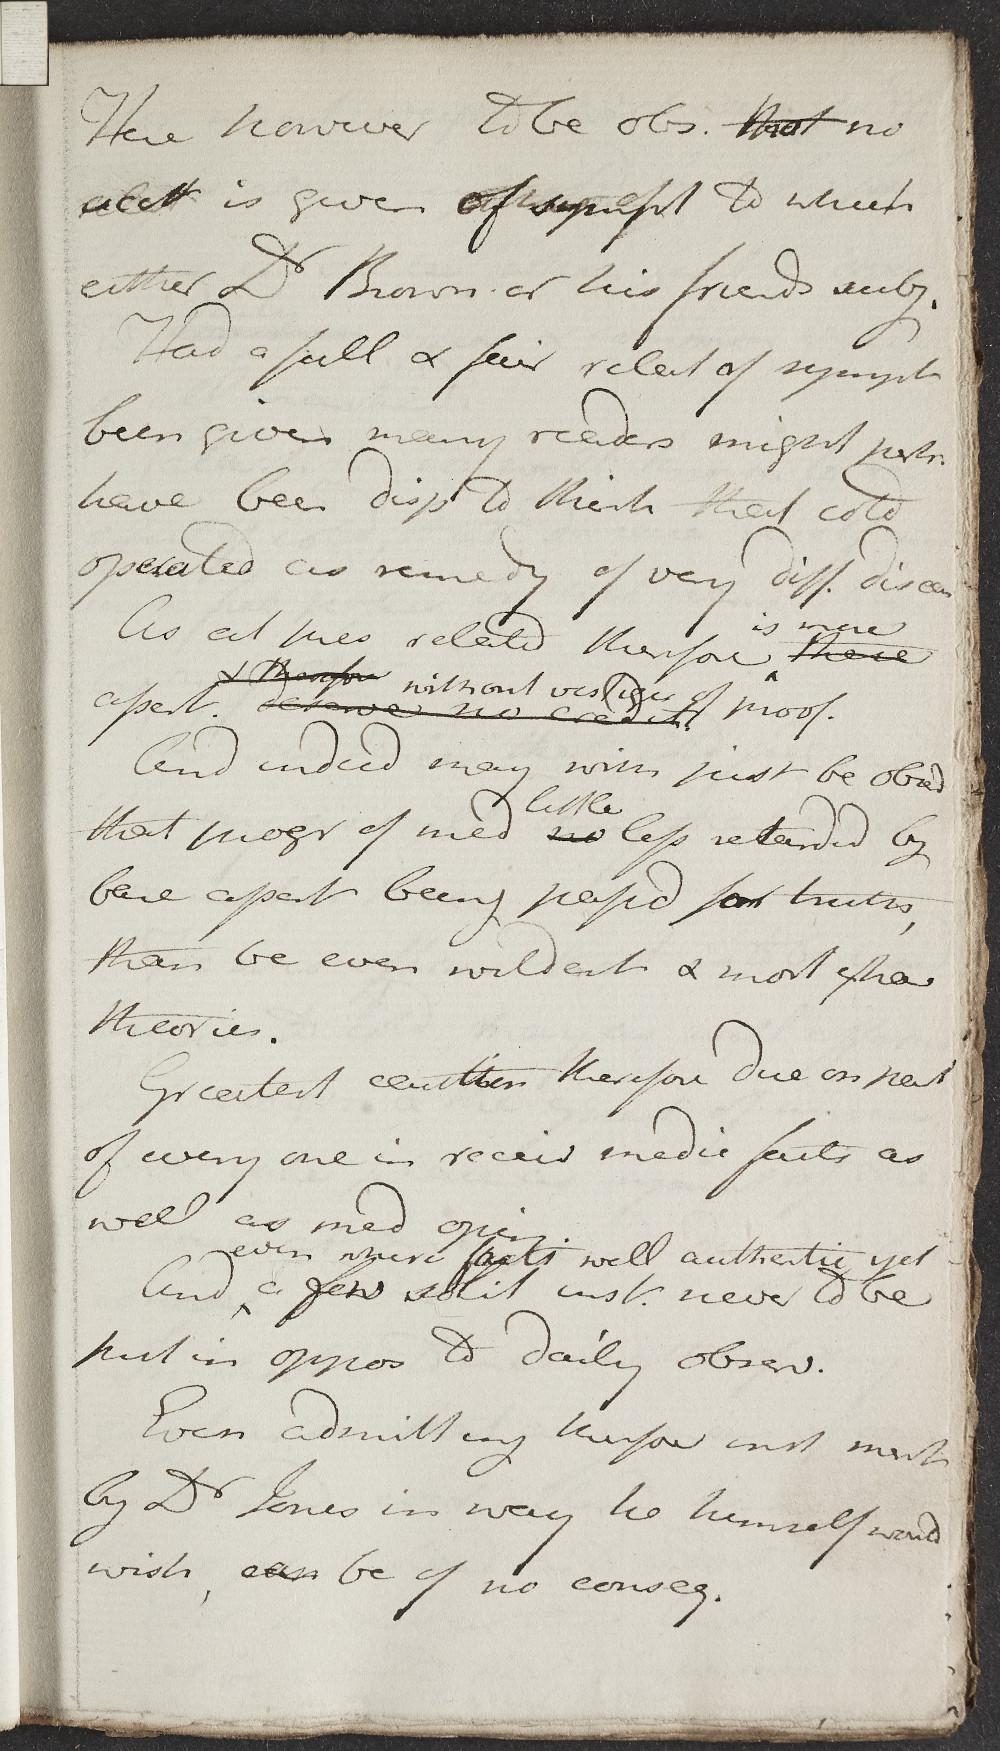 Here however to be obs. that no
acct is given of sympt to which
either Dr Brown or his friends subj.
Had a full & fair relat of sympt
been given many readers might perh.
have been disp to think that cold
operated as remedy of very diff. diseas
is mere
As at pres related therefore ^ these
& therefore without vestige of proof.
assert. deserve no credit.
And indeed may with just be obsd
little
that progr of med no less retarded by
bare assert being passd for truths,
than be even wildest & most
theories.
Greatest caution therefore due on part
of every one in receiv medic facts as
well as med opin.
even where facts well authentic yet
And ^ a few solit inst. never to be
put in oppos to daily observ.
Even admitting therefore inst ment
by Dr Jones in way he himself would
wish, can be of no conseq.